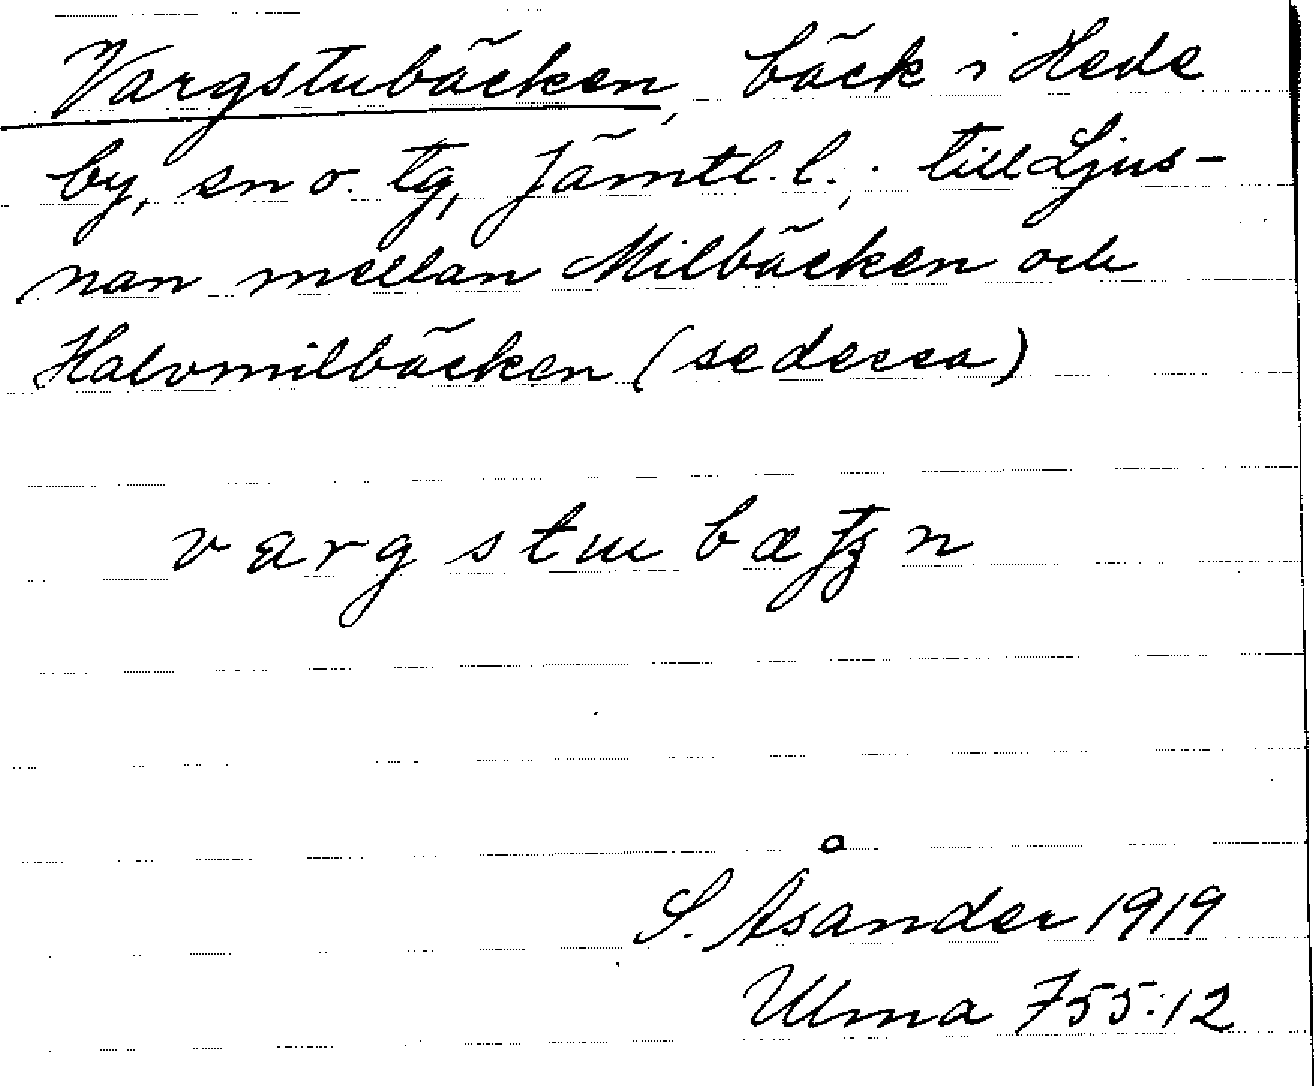 Vargstubäcken, bäck i Hede
by, sn o. tg, Jämtl. l.; till Ljus-
nan mellan Milbäcken och
Halvmilbäcken (se dessa)
S. Åsander 1919
Ulma 755:12